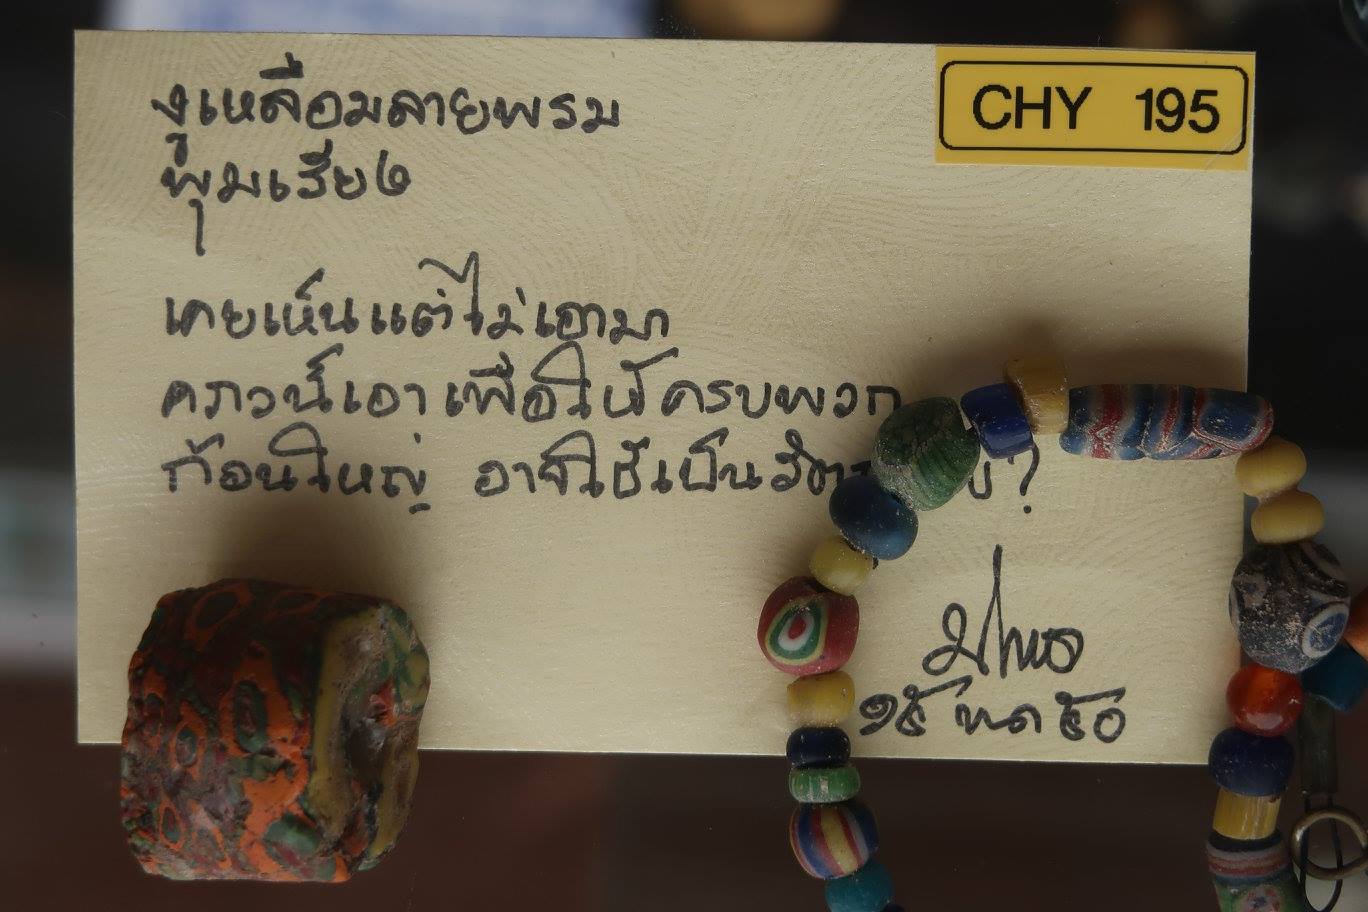 CHY 195
งูเหลือมลายพรม
พุมเรียง
เคยเห็นแต่ไม่เอามา
คราวนี้เอาเพื่อให้ครบพวก
ก้อนใหญ่ อาจใช้เป็น ?
๑๕